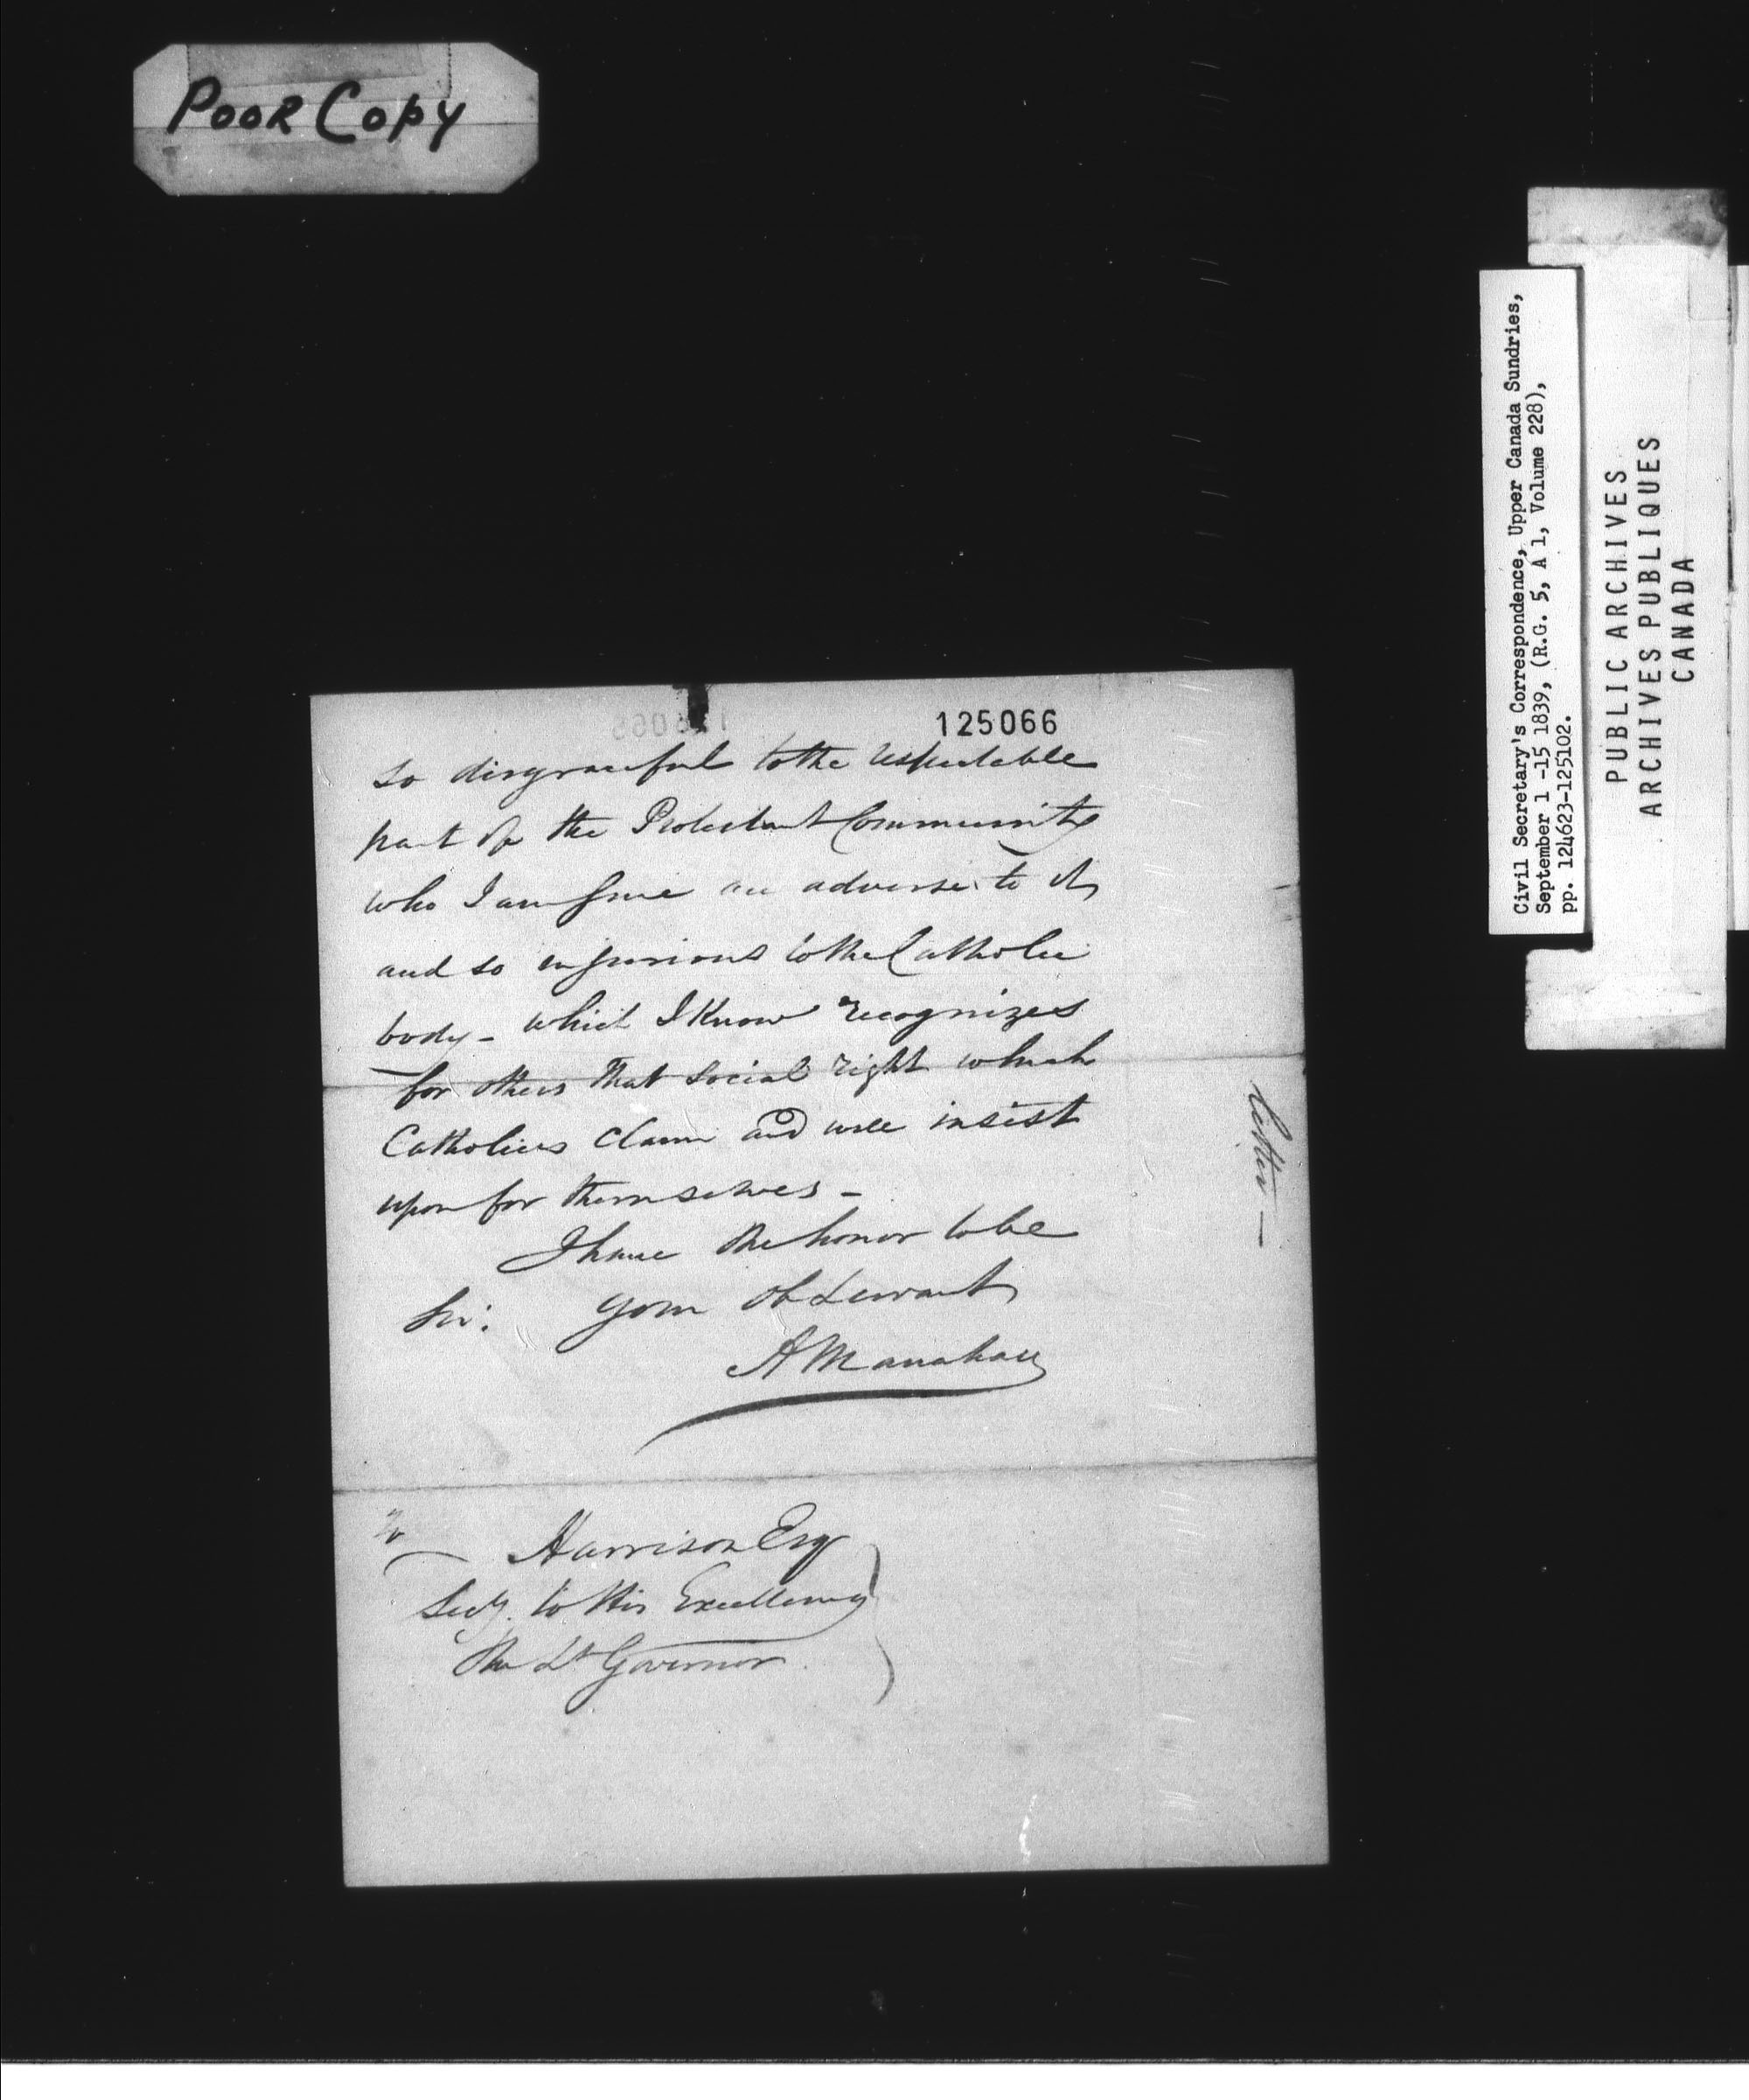 Poor Copy
125066
so disgraceful to the respectable
part of the Protestant Community
who I am sure are adverse to it
and so injurious to the Catholic
body - which I Know recognizes
for others that social right which
Catholics claim and will insist
upon for themselves -
I have the honor to be
Sir: your ob Servant
A Manahan
To
Harrison Esq
Secy. to His Excellency
The Lt Governor
letter -
Civil Secretary's Correspondence, Upper Canada Sundries,
September 1 -15 1839, (R.G. 5, A 1, Volume 228),
pp. 124623-125102.
PUBLIC ARCHIVES
ARCHIVES PUBLIQUES
CANADA